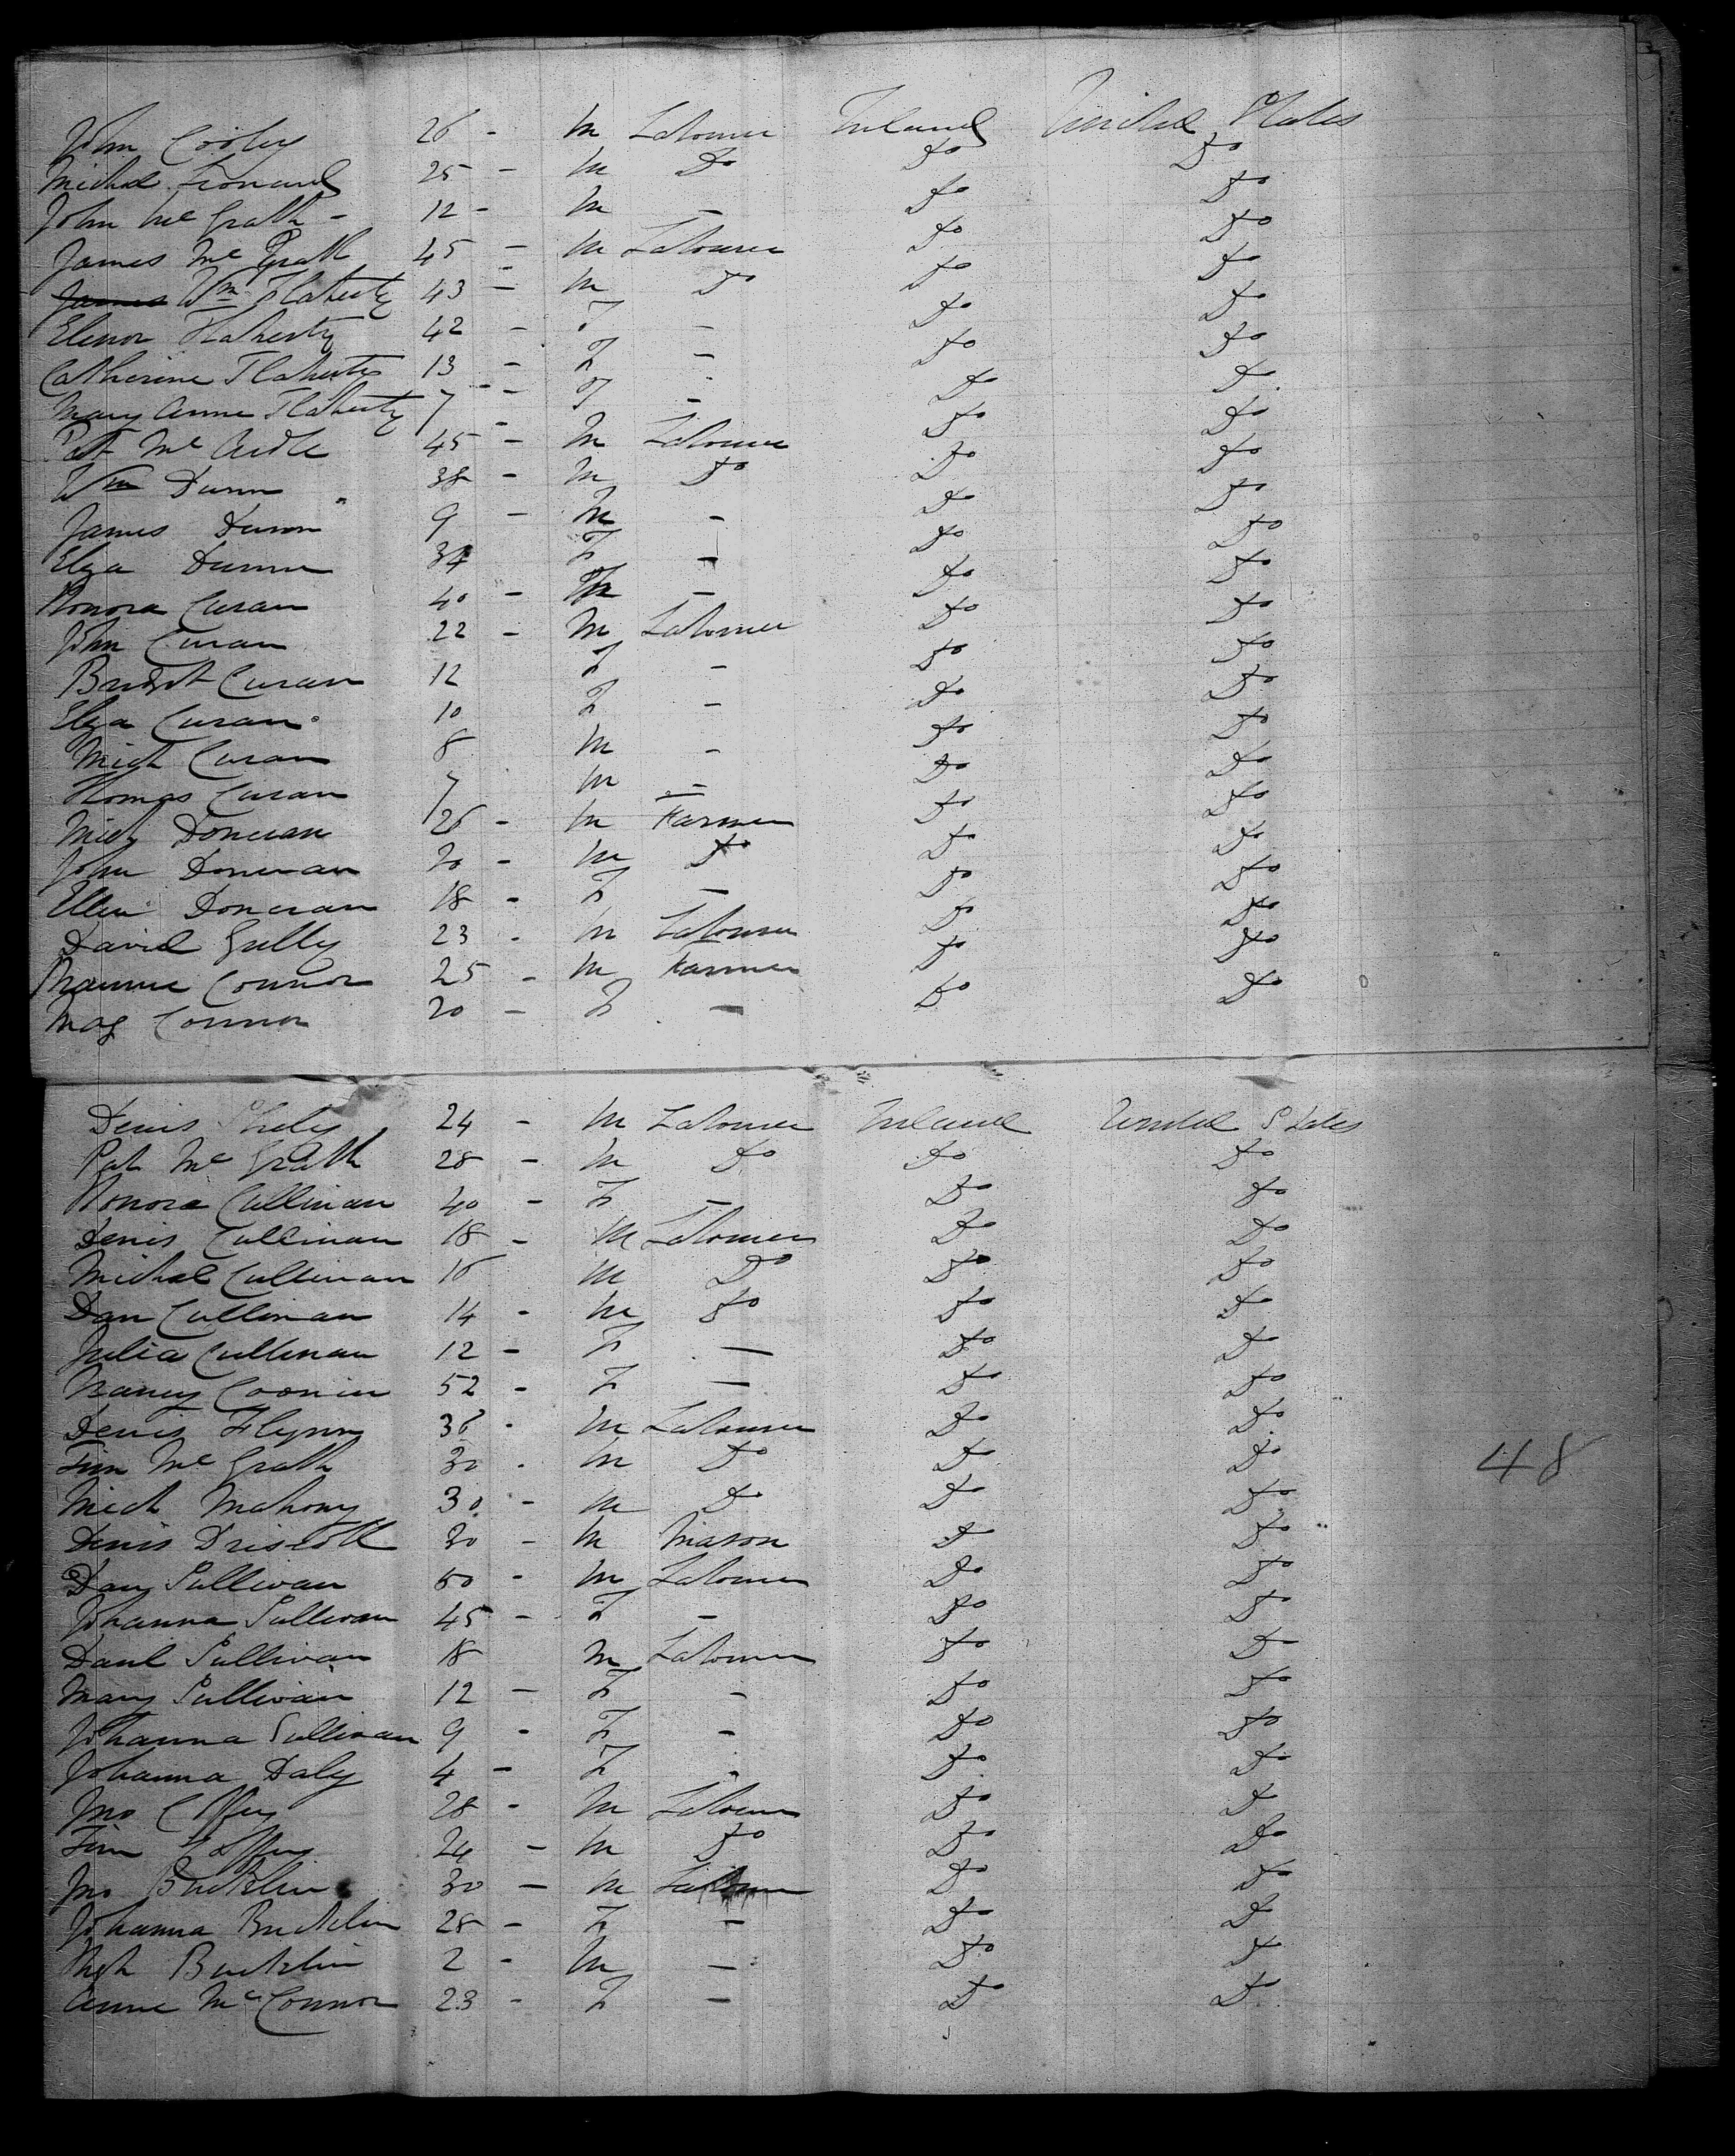 John Cooley 26 - M Labourer Ireland United States
Michal Leonard 25 - M Do Do Do
John McGrath - 12 - M - Do Do
James McGrath 45 - M Labourer Do Do
James Wm Flaherty 43 - M Do Do Do
Elenor Flaherty 42 - F - Do Do
Catherine Flaherty 13 - F - Do Do
Mary Anne Flaherty 7 - - F - Do Do
Pat McArdle 45 - M Labourer Do Do
Wm Dunn 38 - M Do Do Do
James Dunn 9 - M - Do Do
Elza Dunn 34 F - Do Do
Honora Curan 40 - - Do Do
John Curan 22 - M Labourer Do Do
Bridgt Curan 12 F - Do Do
Elza Curan 10 F - Do Do
Mich Curan 8 M - Do Do
Thomas Curan 7 M - Do Do
Mich Donevan 26 - M Farmer Do Do
John Donevan 20 - M Do Do Do
Ellen Donevan 18 - F - Do Do
David Gully 23 - M Labourer Do Do
Connor 25 - M Farmer Do Do
Mag Connor 20 - F - Do Do
Denis Shely 24 - M Labourer Ireland United States
Pat McGrath 28 - M Do Do Do
Honora Cullinan 40 - F - Do Do
Denis Cullinan 18 - M Labourer Do Do
Michal Cullinan 16 M Do Do Do
Dan Cullinan 14 - M Do Do Do
Julia Cullinan 12 - F - Do Do
Nancy 52 - F - Do Do
Denis Flynn 36 - M Labourer Do Do
Tim McGrath 30 - M Do Do Do 48
Mich Mahony 30 - M Do Do Do
Denis Driscoll 30 - M Mason Do Do
Dan Sullivan 50 - M Labourer Do Do
Johanna Sullivan 45 - F - Do Do
Danl Sullivan 18 M Labourer Do Do
Mary Sullivan 12 - F - Do Do
Johanna Sullivan 9 - F - Do Do
Johanna Daly 4 - F - Do Do
Jno Coffey 28 - M Labourer Do Do
Tim Coffey 24 - M Do Do Do
Jno Bucklin 30 - M Labourer Do Do
Johanna Bucklin 28 - F - Do Do
Bucklin 2 - M - Do Do
Anne McConnor 23 - F - Do Do